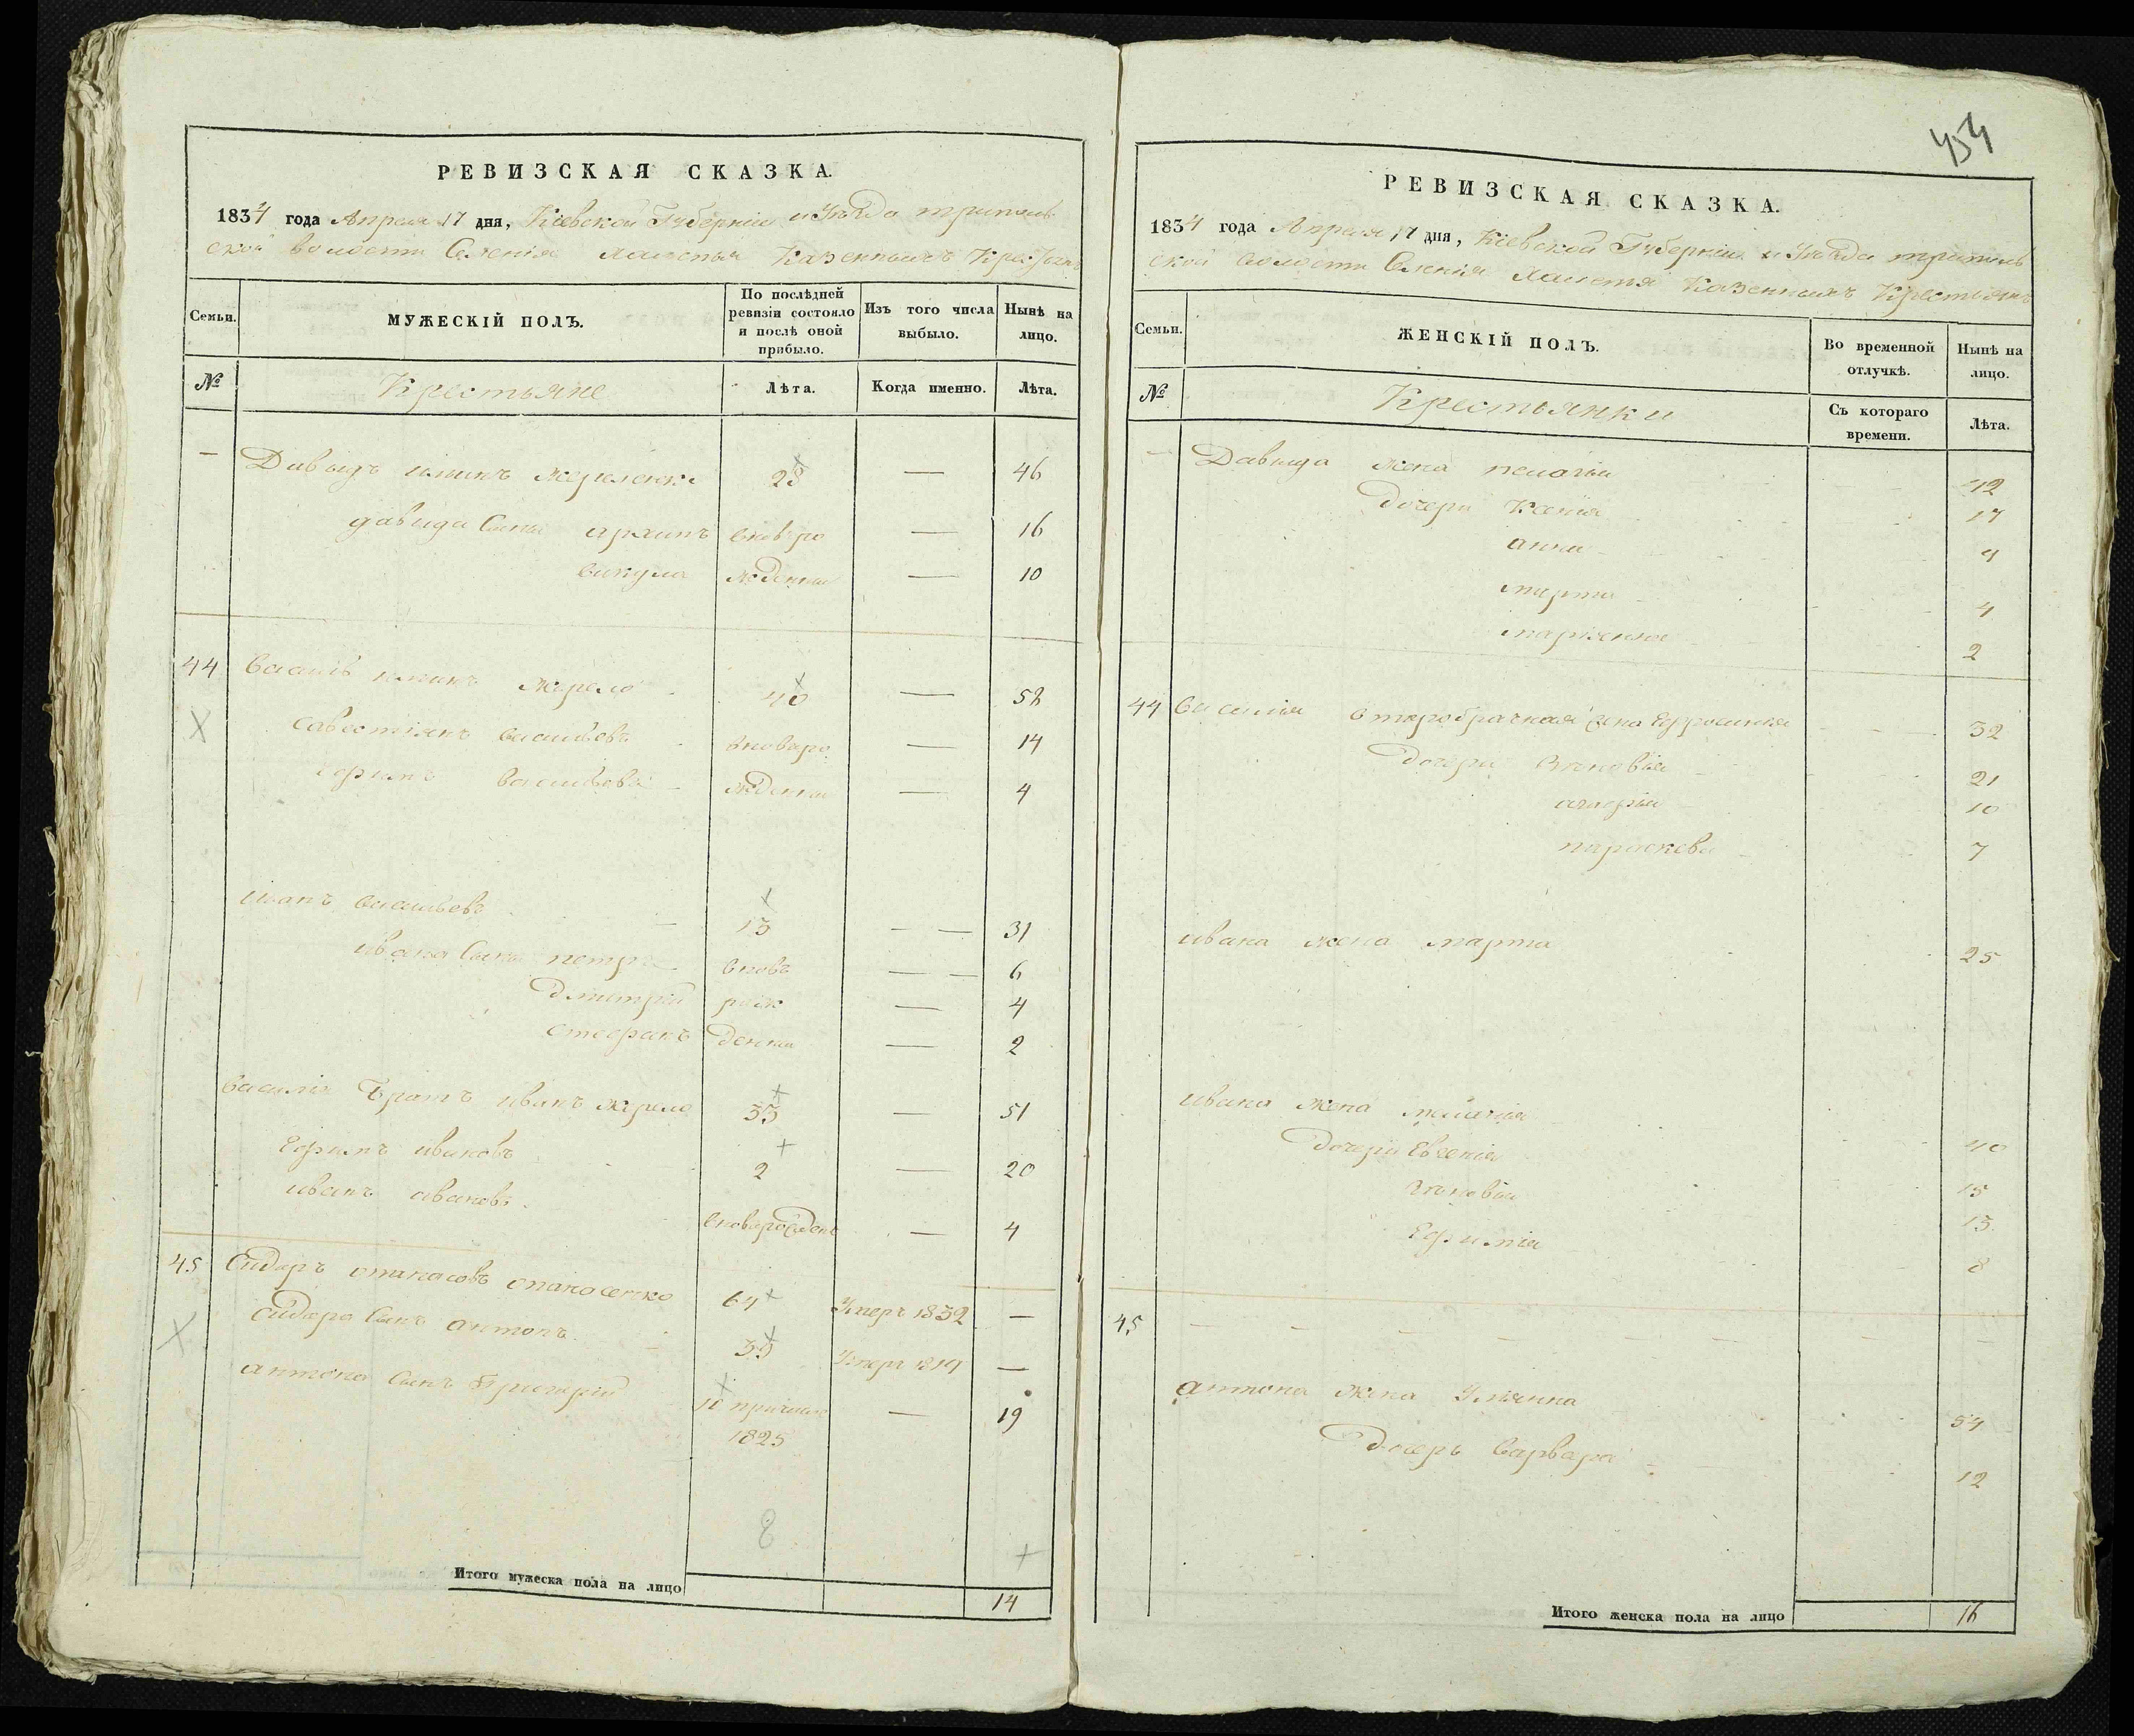 РЕВИЗСКАЯ СКАЗКА.
1834 года Апреля 17 дня, Кіевской Губерніи и Уѣзда триполь
ской волости Селенія Казенныхъ Крестьянъ
Семьи.
МУЖЕСКІЙ ПОЛЪ.
По послѣдней ревизіи состояло и послѣ оной прибыло.
Изъ того числа выбыло.
Нынѣ на лицо.
№
Крестьяне
Лѣта.
Когда именно.
Лѣта.
— Давыдъ 28 — 46
давида Сыны архипъ вновъро — 16
викула жденны — 10
44 Василь жерело 40 — 58
савостіянъ васильевъ вноворо — 14
ефимъ васильевъ жденны — 4
иванъ васильевъ — 13 — — 31
ивана Сыны петръ вновъ — — 6
дмитрій рож — 4
стефанъ денны — 2
василія братъ иванъ жерело 33 — 51
Ефимъ ивановъ 2 — 20
иванъ ивановъ вноворожден — 4
45 Сидоръ опанасовъ опанасенко 64 Умеръ 1832 —
сидора Сынъ антонъ 35 Умеръ 1819 —
антона Сынъ Григорій 10 19
1825
8
Итого мужеска пола на лицо 14
454
РЕВИЗСКАЯ СКАЗКА.
1834 года Апреля 17 дня, Кіевской Губерніи и Уѣзда триполь
ской волости Селенія Казенныхъ Крестьянъ
Семьи.
ЖЕНСКІЙ ПОЛЪ.
Во временной отлучкѣ.
Нынѣ на лицо.
№
Крестьянки
Съ котораго времени.
Лѣта.
— Давыда жена 42
дочери Ксенія 17
анна 9
марта 4
маріянна 2
44 василія второбрачная жена Ефросинія 32
дочери Зиновія 21
агафія 10
параскева 7
ивана жена марта 25
ивана жена меланія 40
дочери Евгенія 15
зиновія 13
Ефимія 8
45 — — — — — — — —
антона жена Уліянна 54
дочерь варвара 12
Итого женска пола на лицо 16